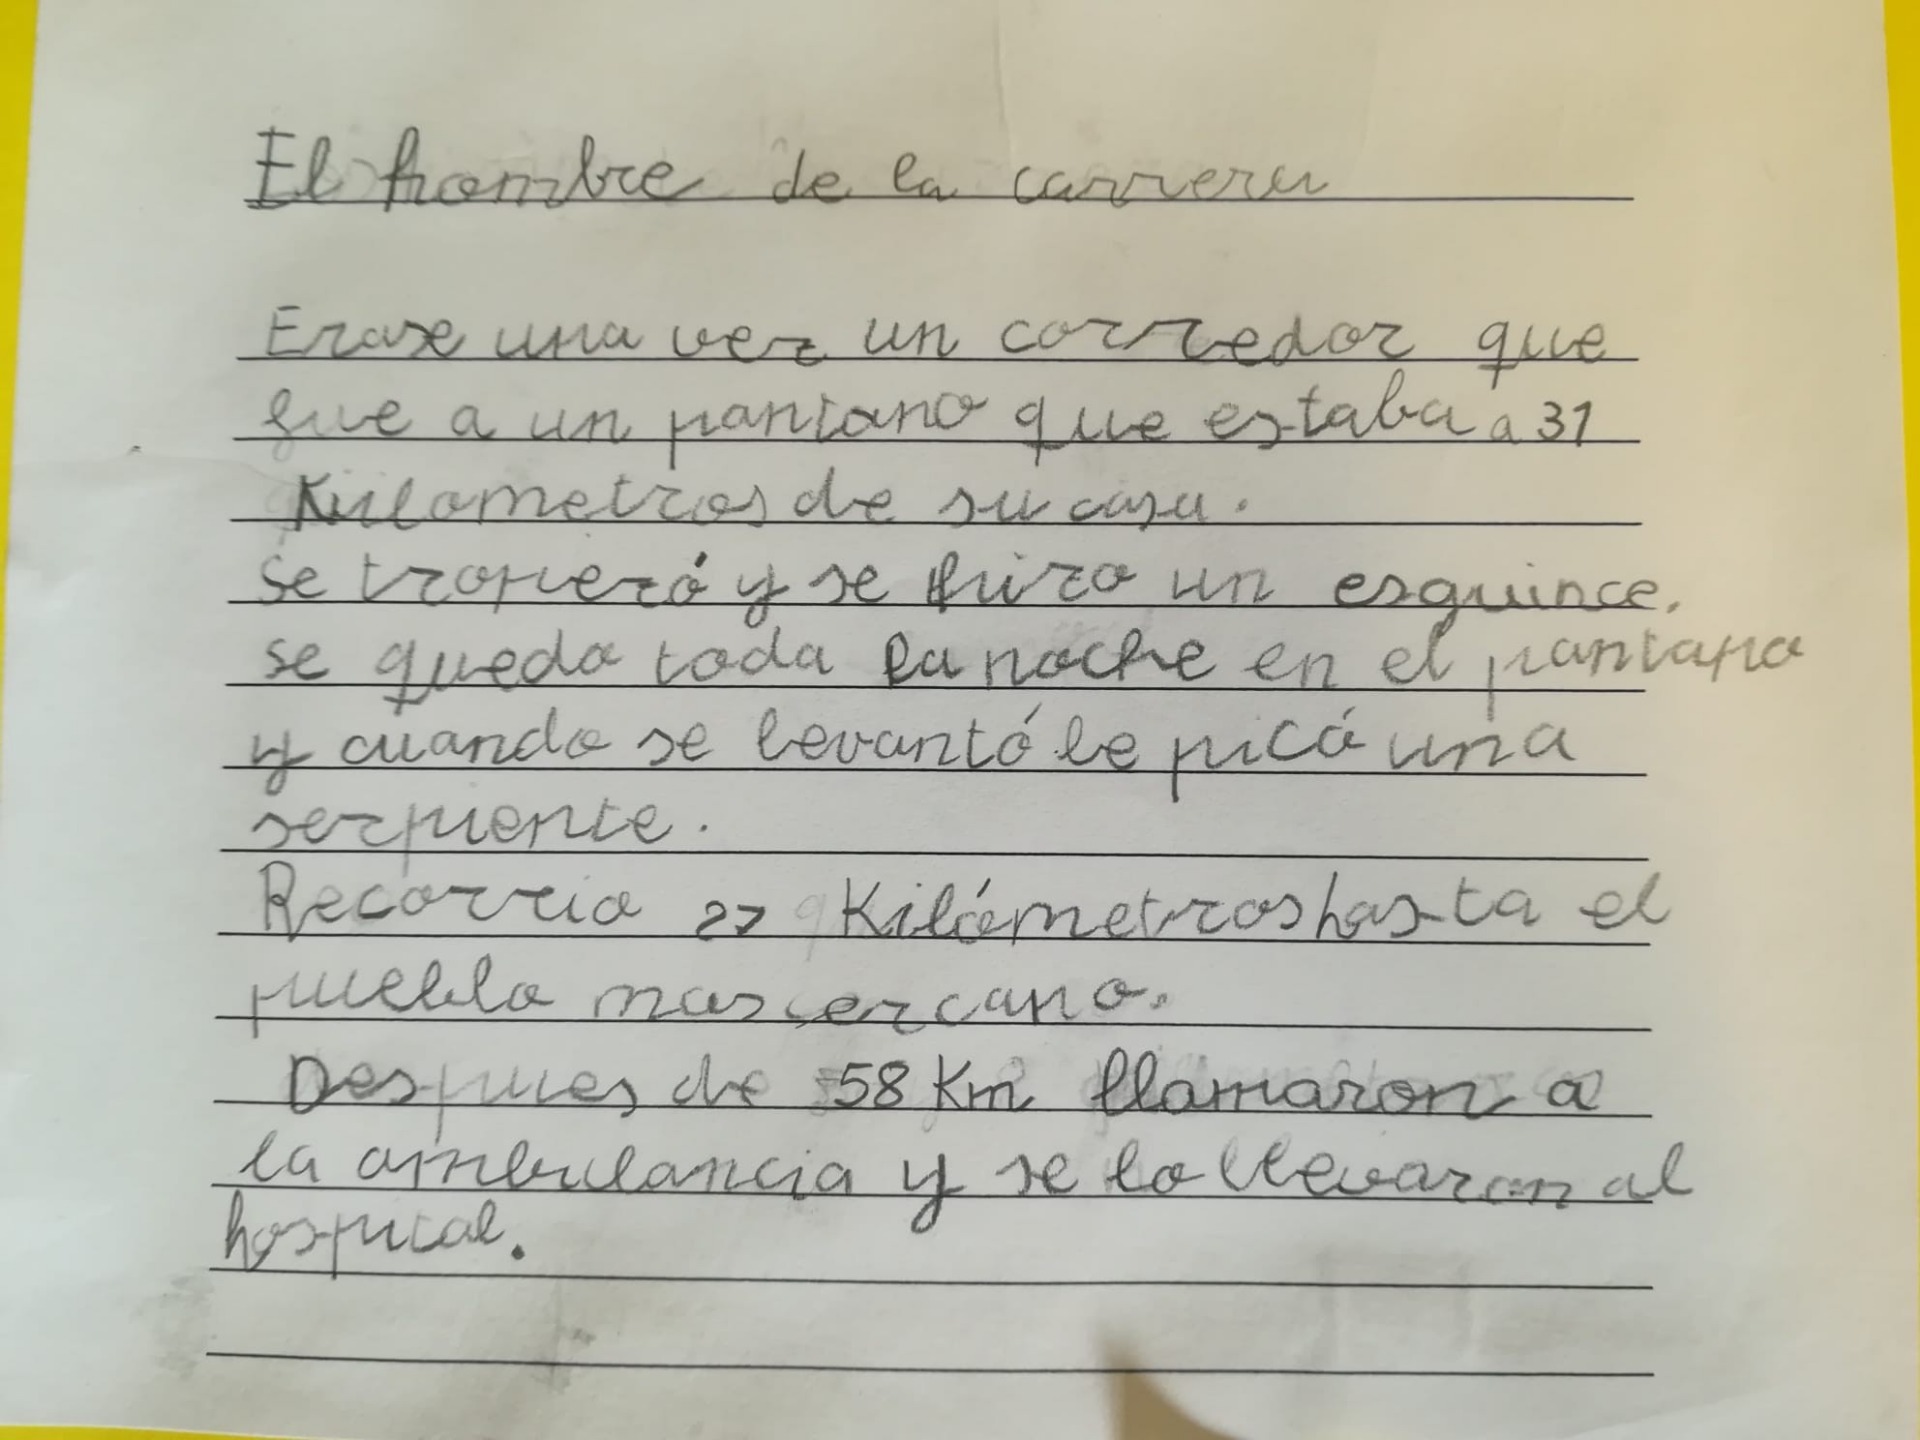 El hombre de la carrera
Erase una vez un corredor que
fue a un pantano que estaba a 31
Kilometros de su casa.
Se tropezó y se hizo un esguince.
se quedo toda la noche en el pantano
y cuando se levantó le picó una
serpiente.
Recorrio 27 Kilómetros hasta el
pueblo mas cercano.
Despues de 58 Km llamaron a
la ambulancia y se lo llevaron al
hospital.